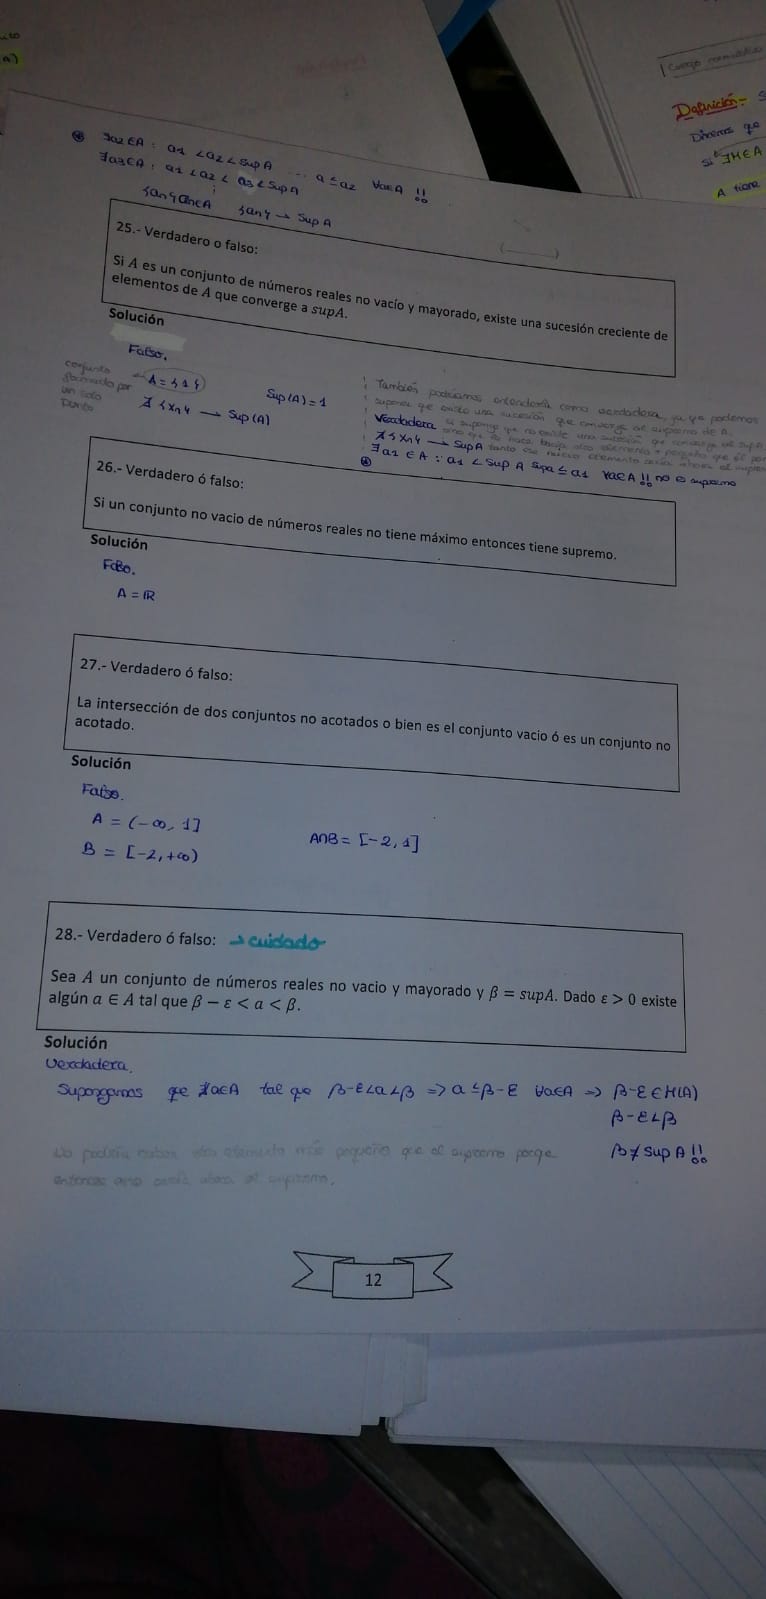 Definición:
Diremos que
Si ∃M∈A
A tiene
⊛ ∃a2∈A : a1 < a2 < Sup A ... a ≤ a2 ∀a∈A !!
∃a3∈A : a1 < a2 < a3 < Sup A
{an} an∈A {an} → Sup A
25.- Verdadero o falso:
Si A es un conjunto de números reales no vacío y mayorado, existe una sucesión creciente de
elementos de A que converge a supA.
Solución
Falso.
conjunto
formado por
un solo
punto
A = {1} Sup(A) = 1
∄ {xn} → Sup(A)
También podríamos entenderla como verdadera, ya que podemos
suponer que existe una sucesión que converge al supremo de A.
Verdadera
∄ {xn} → Sup A
∃a1 ∈ A : a1 < Sup A a ≤ a1 ∀a∈A !! no es supremo
⊛
26.- Verdadero ó falso:
Si un conjunto no vacio de números reales no tiene máximo entonces tiene supremo.
Solución
Falso.
A = ℝ
27.- Verdadero ó falso:
La intersección de dos conjuntos no acotados o bien es el conjunto vacio ó es un conjunto no
acotado.
Solución
Falso.
A = (-∞, 1]
B = [-2, +∞)
A∩B = [-2, 1]
28.- Verdadero ó falso: → cuidado
Sea A un conjunto de números reales no vacio y mayorado y β = supA. Dado ε > 0 existe
algún a ∈ A tal que β − ε < a < β.
Solución
Verdadera.
Supongamos que ∄a∈A tal que β-ε<a<β => a ≤ β-ε ∀a∈A => β-ε ∈ M(A)
β-ε<β
β ≠ Sup A !!
No podría haber otro elemento más pequeño que el supremo porque
entonces ese sería ahora el supremo.
12